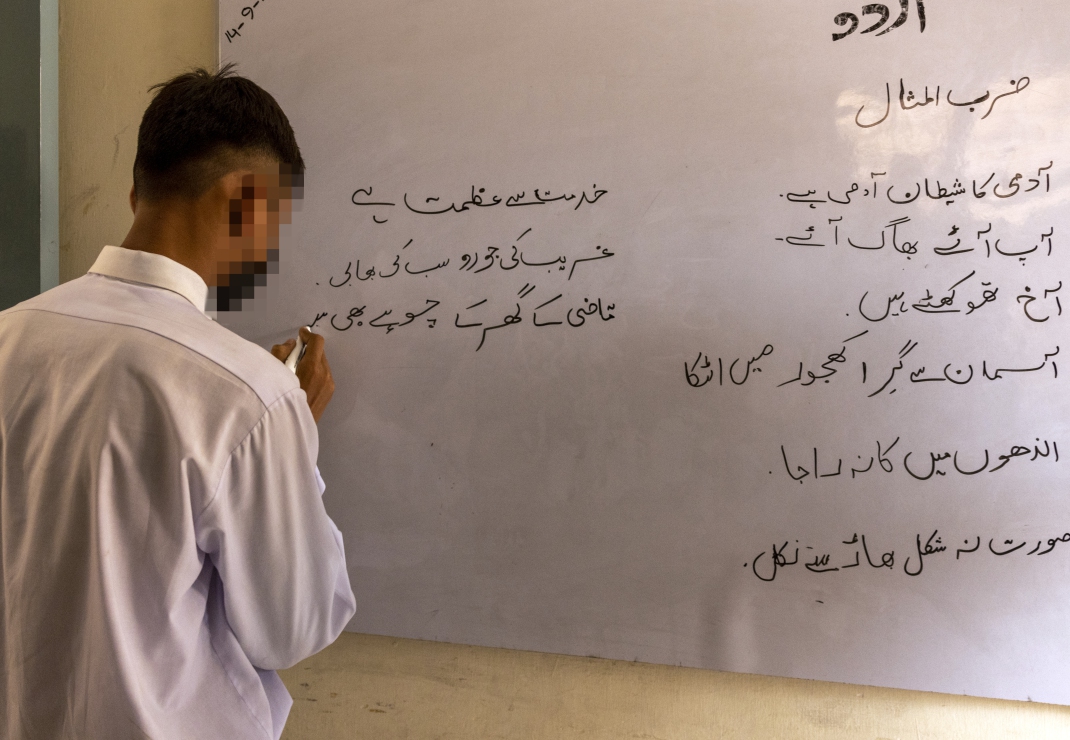 14-9-
اردو
ضرب المثال
آدمی کا شیطان آدمی ہے.
آپ آئے بھاگ آئے-
آخ تھو کھٹے ہیں.
آسمان سے گرا کھجور میں اٹکا
اندھوں میں کانہ راجا.
صورت نہ شکل بھاڑ سے نکل.
خدمت سے عظمت ہے
غریب کی جورو سب کی بھابی.
قاضی کے گھر کے چوہے بھی